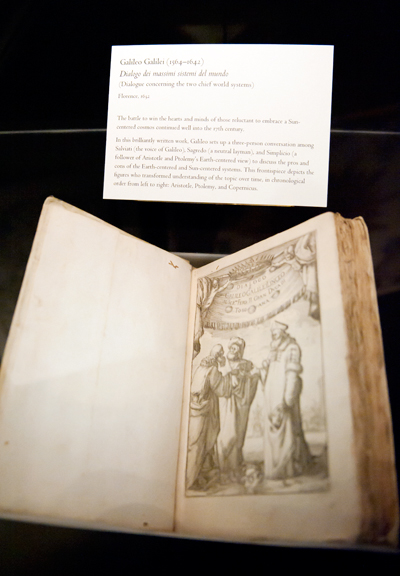 Galileo Galilei (1564–1642)
Dialogo dei massimi sistemi del mondo
(Dialogue concerning the two chief world systems)
Florence, 1632
The battle to win the hearts and minds of those reluctant to embrace a Sun-
centered cosmos continued well into the 17th century.
In this brilliantly written work, Galileo sets up a three-person conversation among
Salviati (the voice of Galileo), Sagredo (a neutral layman), and Simplicio (a
follower of Aristotle and Ptolemy's Earth-centered view) to discuss the pros and
cons of the Earth-centered and Sun-centered systems. This frontispiece depicts the
figures who transformed understanding of the topic over time, in chronological
order from left to right: Aristotle, Ptolemy, and Copernicus.